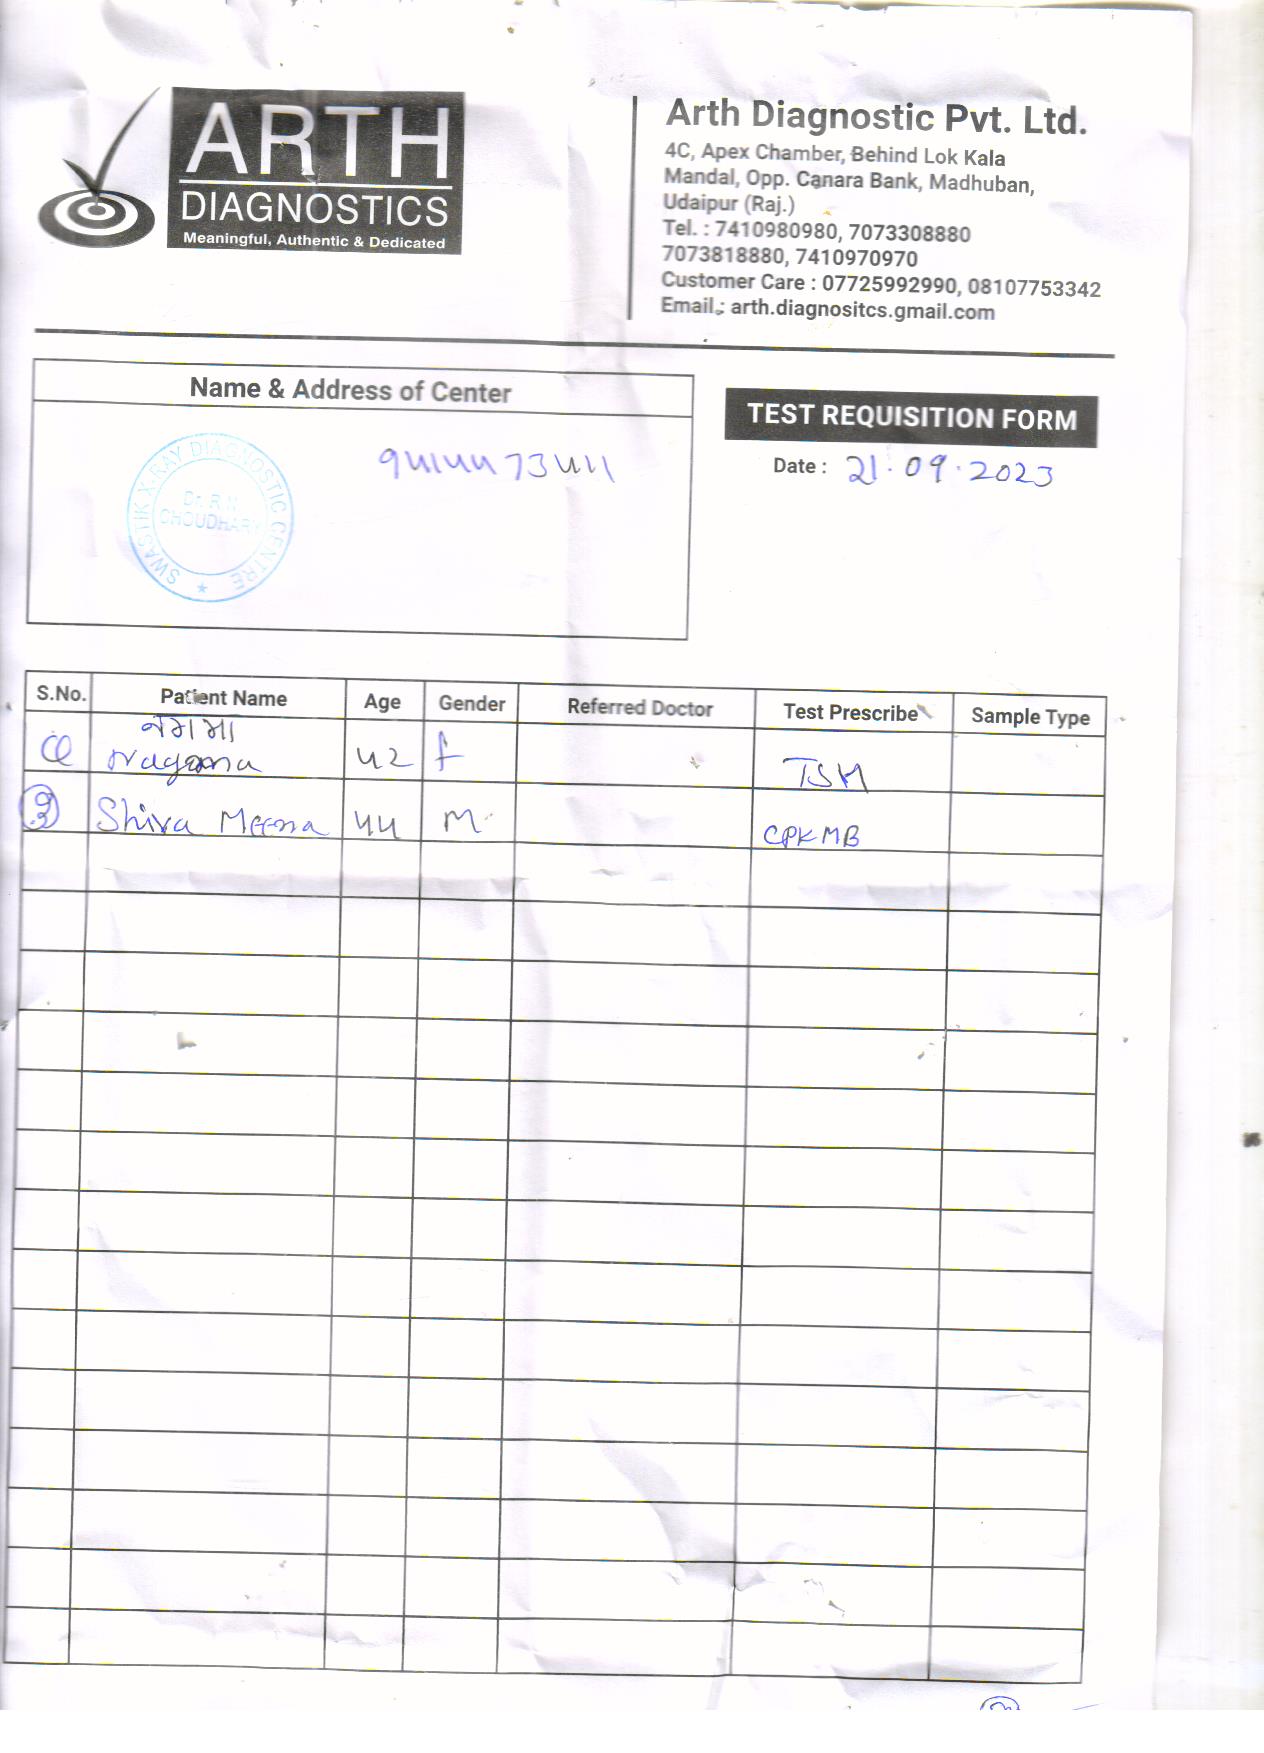 ARTH
DIAGNOSTICS
Meaningful, Authentic & Dedicated
Arth Diagnostic Pvt. Ltd.
4C, Apex Chamber, Behind Lok Kala
Mandal, Opp. Canara Bank, Madhuban,
Udaipur (Raj.)
Tel. : 7410980980, 7073308880
7073818880, 7410970970
Customer Care : 07725992990, 08107753342
Email : arth.diagnositcs.gmail.com
Name & Address of Center
SWASTIK X-RAY DIAGNOSTIC CENTRE
Dr. R K
CHOUDHARY
TEST REQUISITION FORM
Date : 21.09.2023
S.No. Patient Name Age Gender Referred Doctor Test Prescribe Sample Type
नगमा
Nagama 42 F TSH
2 Shiva Meena 44 M CPKMB